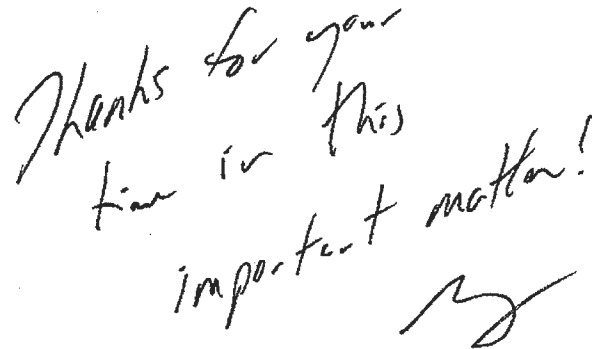 Thanks for your
time in this
important matter!